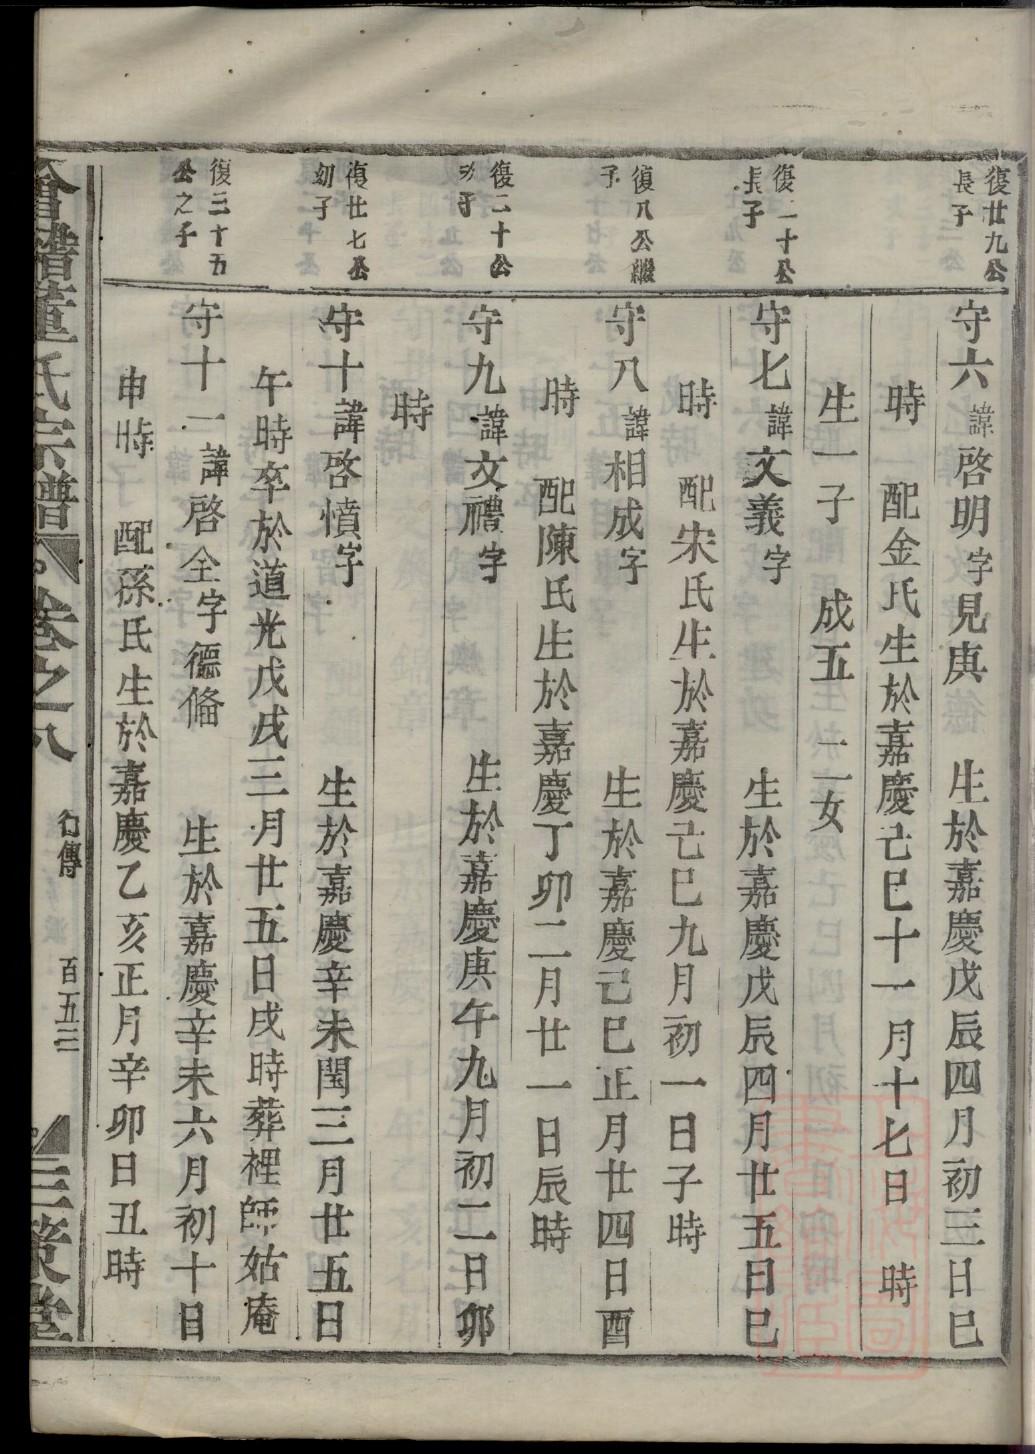 復廿九公
長子
守六諱啓明字見庚　生於嘉慶戊辰四月初三日巳
時　配金氏生於嘉慶己巳十一月十七日　時
生一子　成五　二女
復二十公
長子
守七諱文義字　生於嘉慶戊辰四月廿五日巳
時　配宋氏生於嘉慶己巳九月初一日子時
復八公繼
子
守八諱相成字　生於嘉慶己巳正月廿四日酉
時　配陳氏生於嘉慶丁卯二月廿一日辰時
復二十公
次子
守九諱文禮字　生於嘉慶庚午九月初二日卯
時
復廿七公
幼子
守十諱啓憤字　生於嘉慶辛未閏三月廿五日
午時卒於道光戊戌三月廿五日戌時葬裡師姑庵
復三十五
公之子
守十一諱啓全字德脩　生於嘉慶辛未六月初十日
申時　配孫氏生於嘉慶乙亥正月辛卯日丑時
會稽董氏宗譜　卷之八　行傳　百五三　三策堂